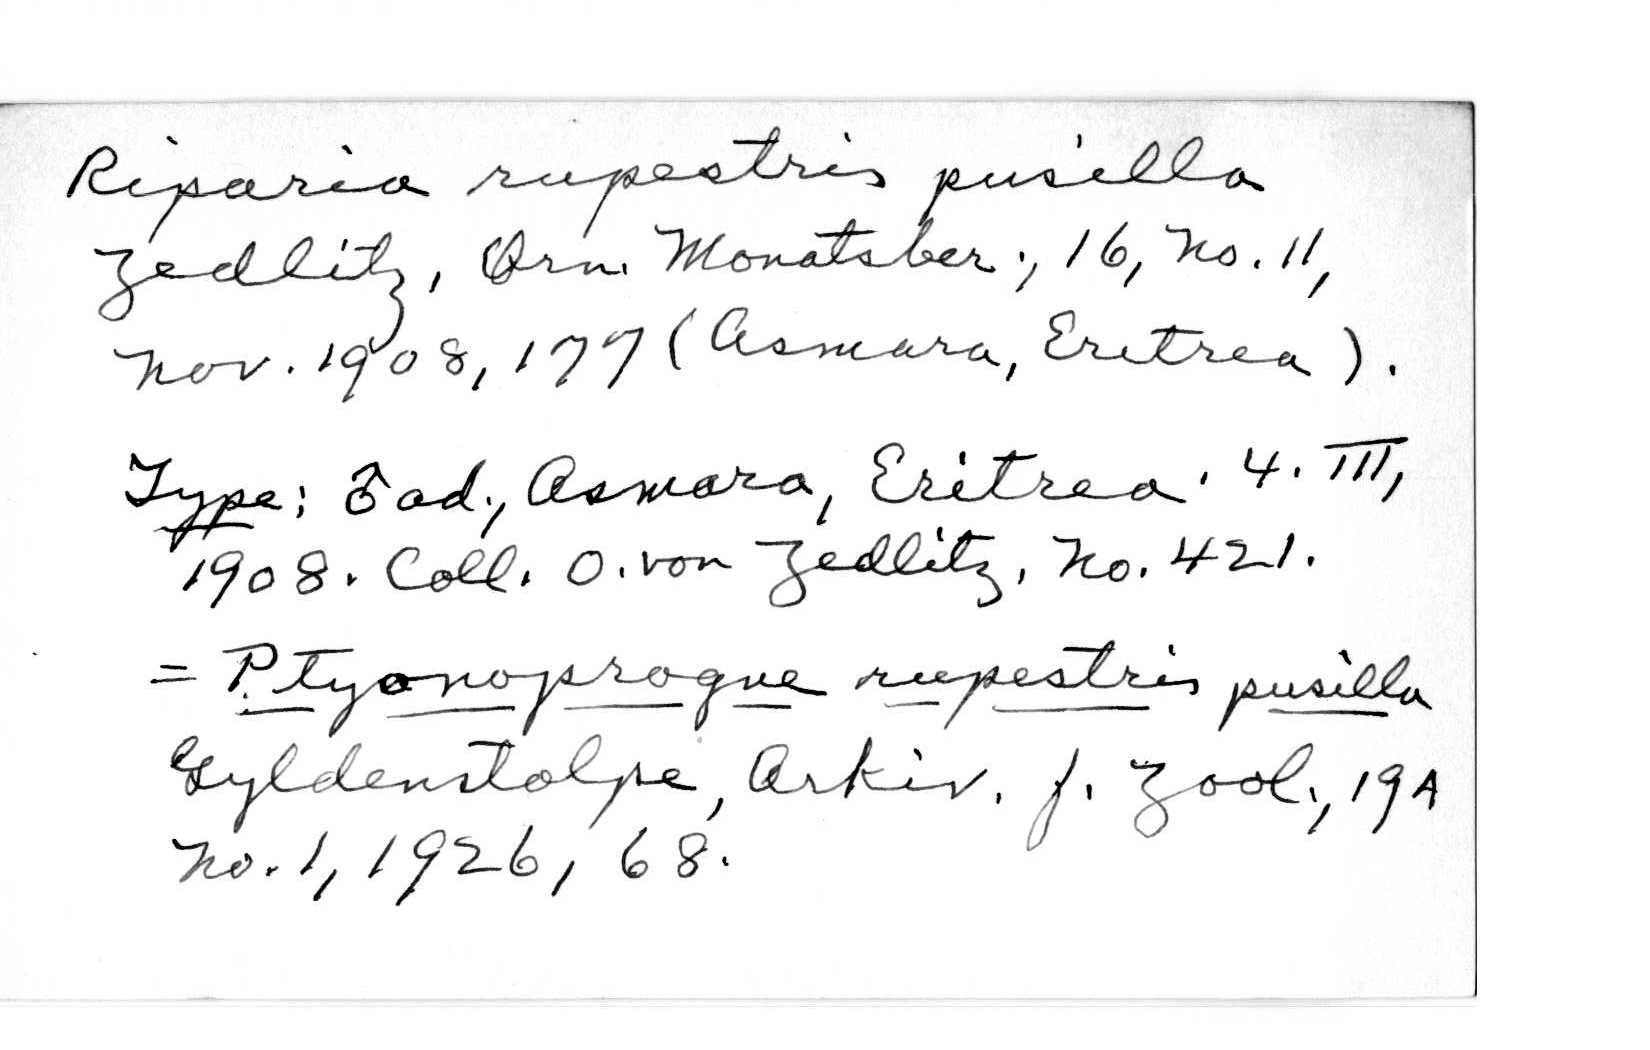 Riparia rupestris pusilla
Zedlitz, Orn. Monatsber., 16, No. 11,
Nov. 1908, 177 (Asmara, Eritrea).
Type: ♂ ad., Asmara, Eritrea. 4. III,
1908. Coll. O. von Zedlitz, No. 421.
= Ptyonoprogne rupestris pusilla
Gyldenstolpe, Arkiv. f. Zool., 19A
No. 1, 1926, 68.